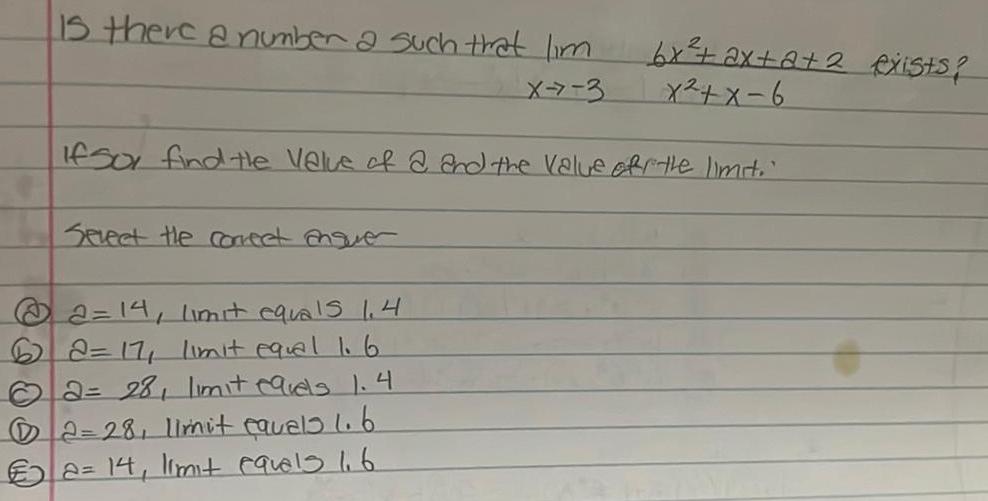 Is there a number a such that lim 6x²+ax+a+2 exists?
x→-3 x²+x-6
If so, find the value of a and the value of the limit.
Select the correct answer
(a) a=14, limit equals 1.4
(b) a=17, limit equal 1.6
(c) a= 28, limit equals 1.4
(D) a=28, limit equals 1.6
(E) a=14, limit equals 1.6